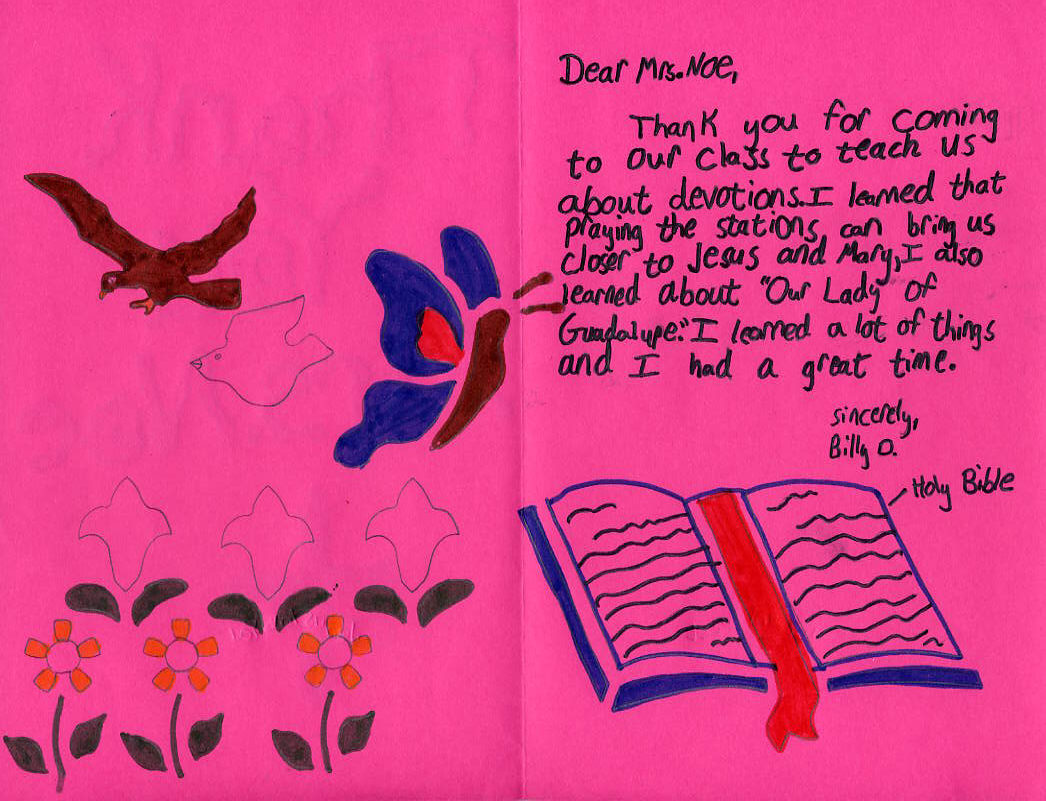 Dear Mrs. Noe,
Thank you for coming
to our class to teach us
about devotions. I learned that
praying the stations can bring us
closer to Jesus and Mary, I also
learned about "Our Lady of
Guadalupe." I learned a lot of things
and I had a great time.
sincerely,
Billy O.
Holy Bible